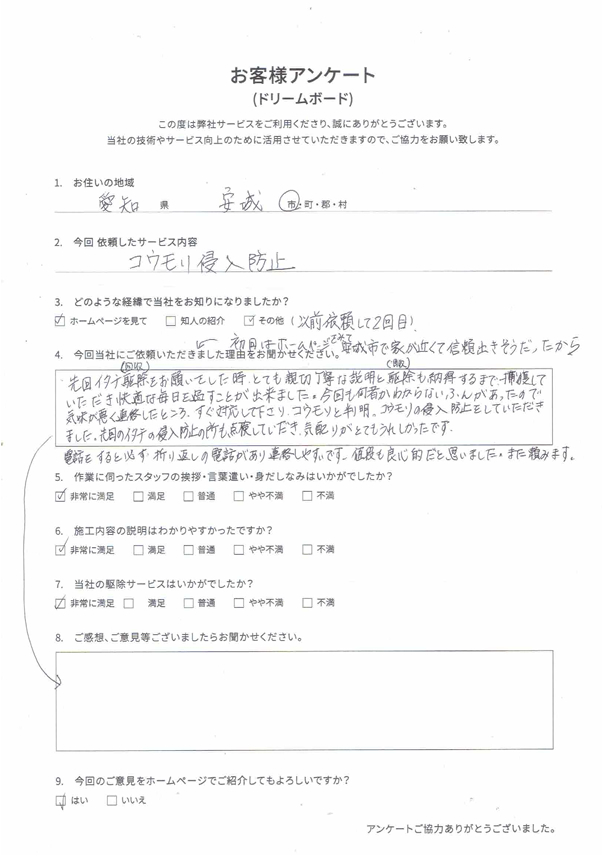 お客様アンケート
(ドリームボード)
この度は弊社サービスをご利用くださり、誠にありがとうございます。
当社の技術やサービス向上のために活用させていただきますので、ご協力をお願い致します。
1. お住いの地域
愛知 県 安城 市・町・郡・村
2. 今回 依頼したサービス内容
コウモリ侵入防止
3. どのような経緯で当社をお知りになりましたか？
ホームページを見て 知人の紹介 その他 (以前依頼して2回目)
初回はホームページで 安城市で家が近くて信頼出きそうだったから
4. 今回当社にご依頼いただきました理由をお聞かせください。
(回収)
先回イタチ駆除をお願いをした時、とても親切丁寧な説明と駆除も納得するまで捕獲して
いただき快適な毎日を過すことが出来ました。今回も何者かわからないふんがあったので
気味が悪く連絡したところ、すぐ対応して下さり、コウモリと判明。コウモリの侵入防止をしていただき
ました。先回のイタチの侵入防止の所も点検していだき、気配りがとてもうれしかったです。
電話をすると必ず折り返しの電話があり連絡しやすいです。値段も良心的だと思いました。また頼みます。
5. 作業に伺ったスタッフの挨拶・言葉遣い・身だしなみはいかがでしたか？
非常に満足 満足 普通 やや不満 不満
6. 施工内容の説明はわかりやすかったですか？
非常に満足 満足 普通 やや不満 不満
7. 当社の駆除サービスはいかがでしたか？
非常に満足 満足 普通 やや不満 不満
8. ご感想、ご意見等ございましたらお聞かせください。
9. 今回のご意見をホームページでご紹介してもよろしいですか？
はい いいえ
アンケートご協力ありがとうございました。